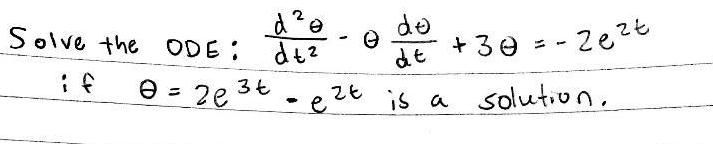 Solve the ODE: d²θ/dt² - θ dθ/dt + 3θ = -2e^{2t}
if θ = 2e^{3t} - e^{2t} is a solution.